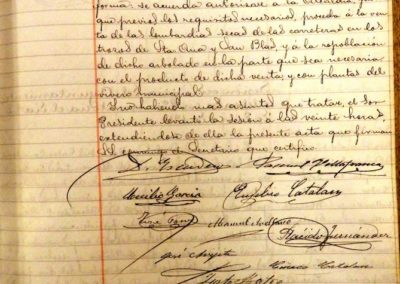 forma: se acuerda autorizar a la Alcaldía, para
que previos los requisitos necesarios, proceda á la ven-
ta de las lombardías secas de las carreteras en los
trozos de Sta Ana y San Blas, y á la repoblación
de dicho arbolado en la parte que sea necesaria
con el producto de dicha venta y con plantas del
vivero municipal.
Y no habiendo mas asuntos que tratar, el Sor
Presidente levantó la sesión á las veinte horas,
extendiéndose de ella la presente acta que firman
Secretario que certifico.
Manuel Villafranca
Emilio García
Eusebio Catalan
Manuel
Plácido Fernández
José
Catalan